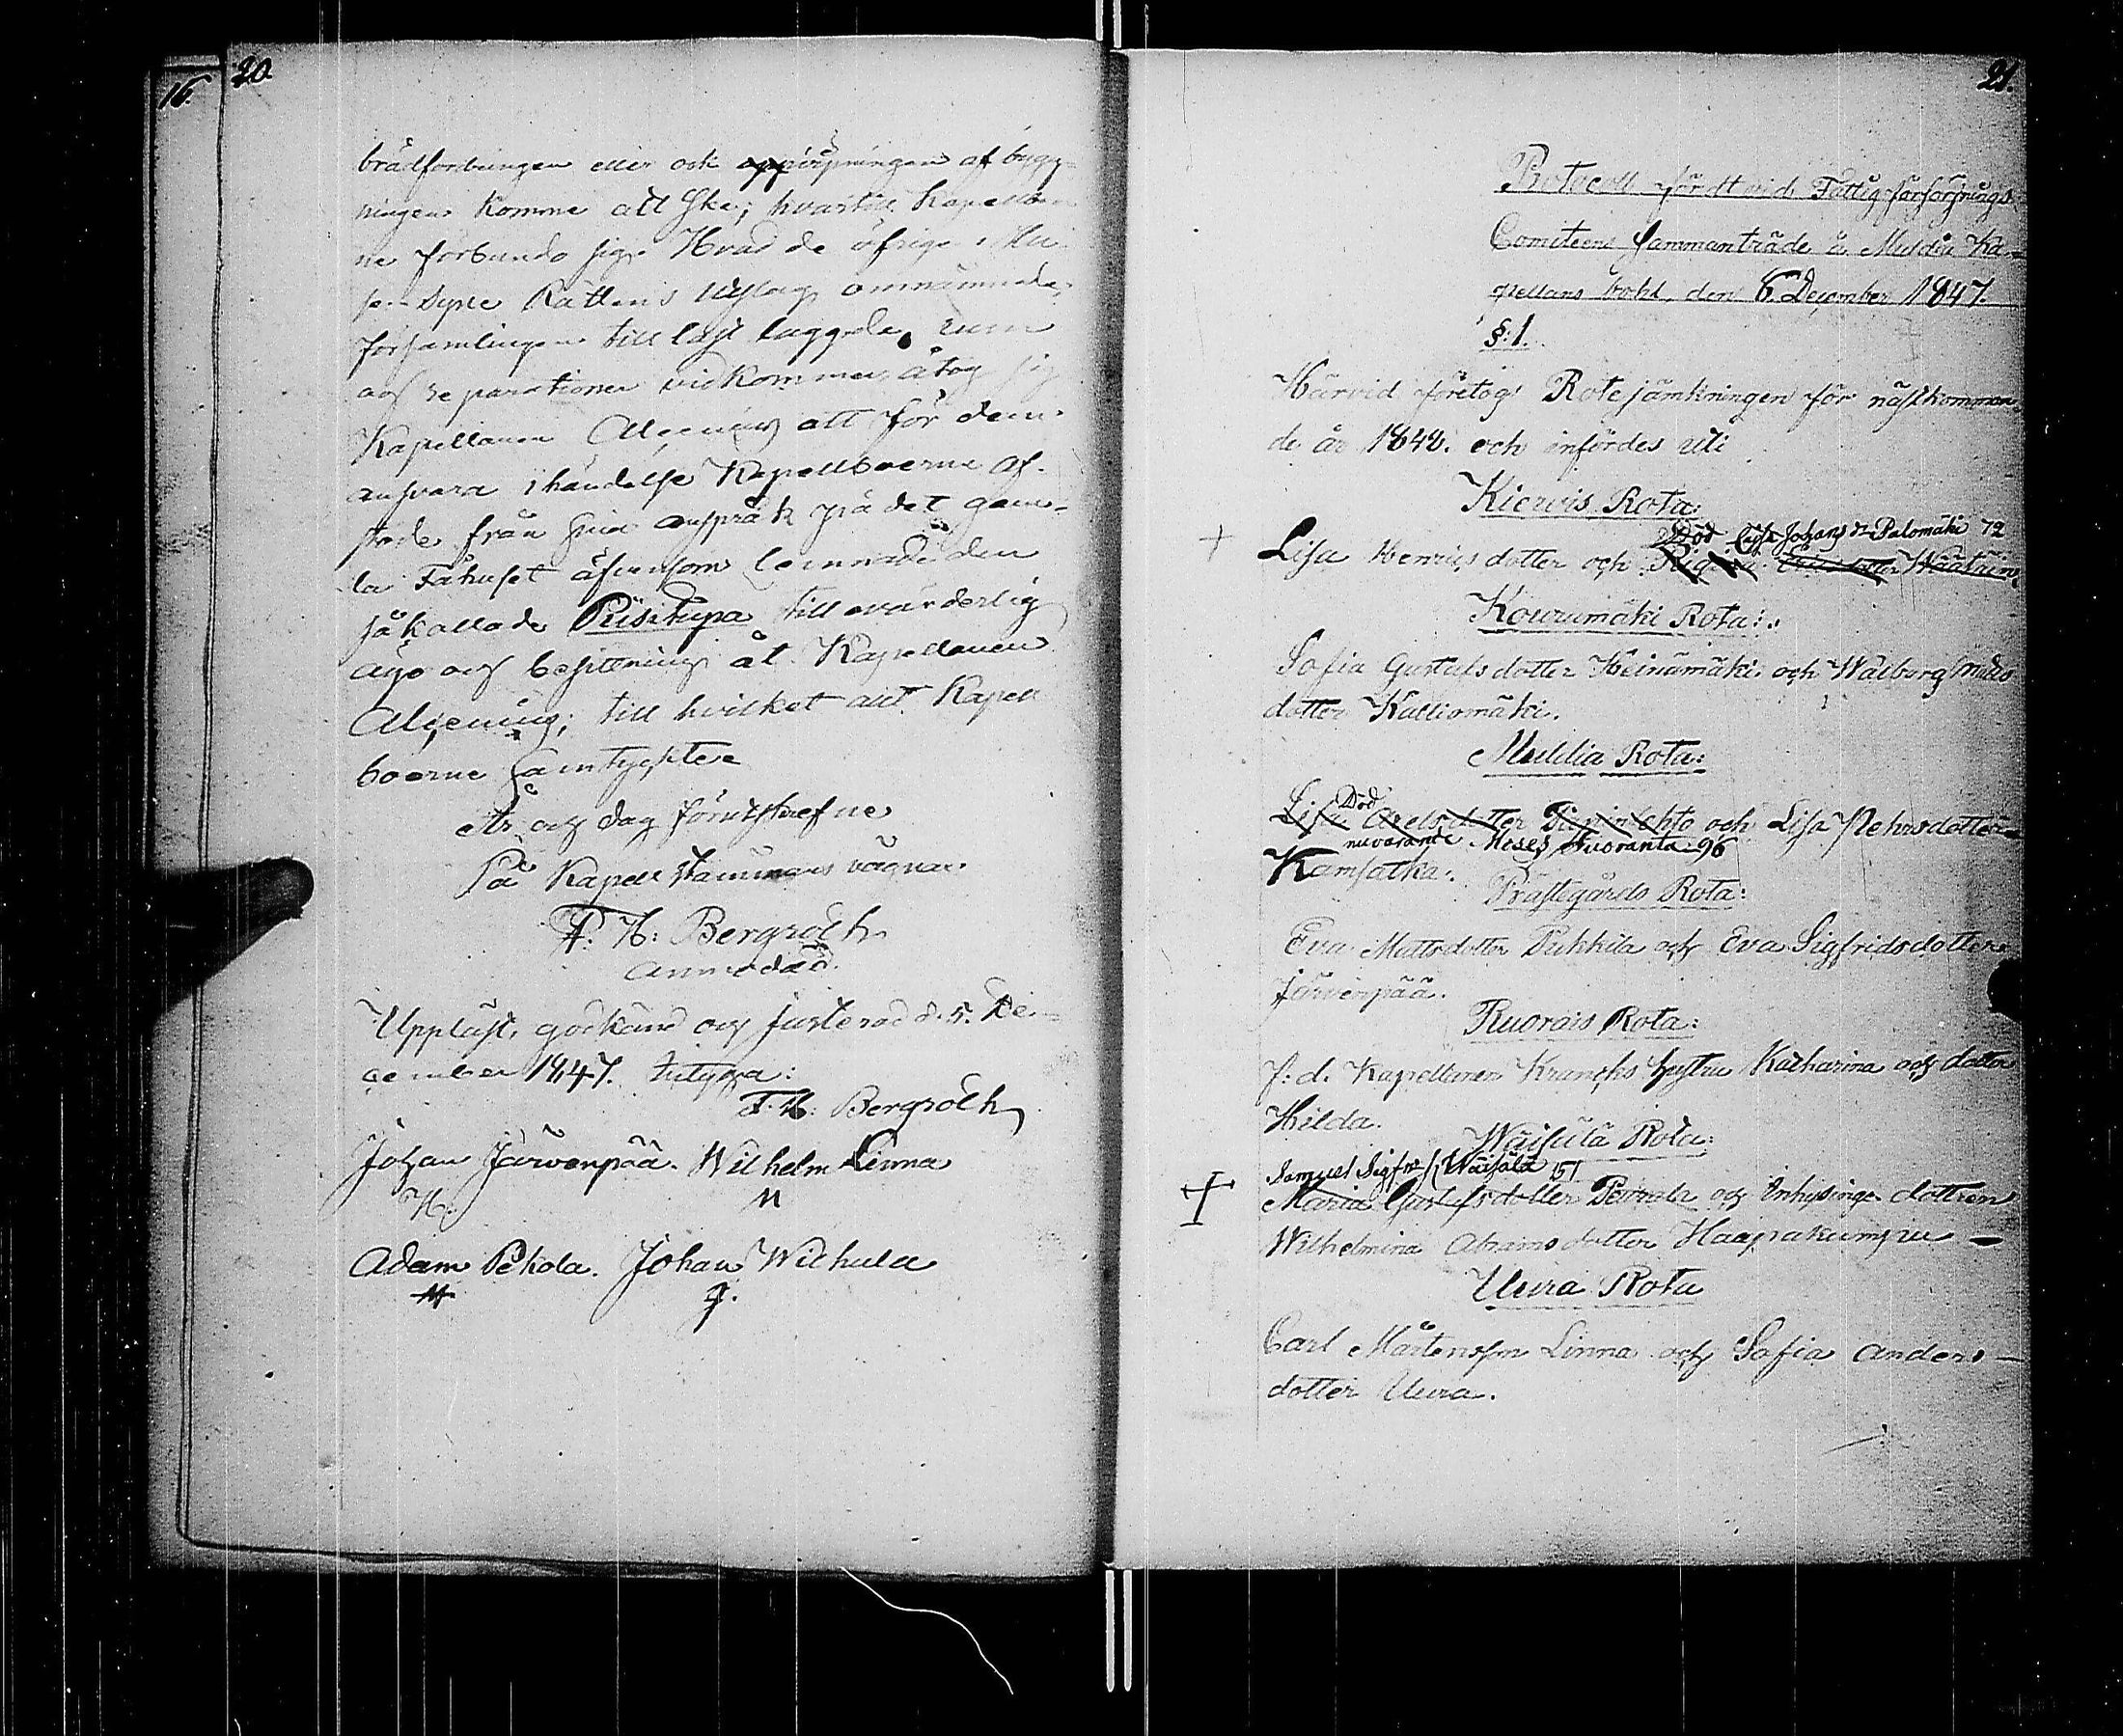 16.
20.
brädfordringen eller ock uppirspningen af bygg-
ningen komme att ske; hvartill Kapellboer-
ne förbundo sig. Hvad de öfrige i Hu-
se Syns Rättens Utslag omnämnda,
församlingen till last laggde, rum
och reparationer vidkommer, åtog sig
Kapellanen Alcenius att för dem
ansvara i händelse Kapellboerne af-
stode från sina anspråk på det gam-
la Fähuset äfvensom lemnade den
så kallade Piisitupa till ovärderlig
ägo och besittning åt Kapellanen
Alcenius; till hvilket allt Kapell
boerne samtyckte.
År och dag förutskrefne
På Kapell stämmans vägnar
F. H: Bergroth
Anmodad.
Uppläst, godkänd och justerad d. 5. De-
cember 1847. betyga:
F. H: Bergroth
Johan Järvenpää. Wilhelm Linna
Adam Pekola. Johan Wilhula
21.
Protocoll fördt vid Fattigförsörjnings
Comiteens sammanträde å Muldia Ka-
pellans bohl, den 6 December 1847.
§: 1.
Härvid företogs Rotejämkningen för nästkomman-
de år 1848. och infördes uti
Kiervis Rota:
Död Lisa Johans dr Palomäki 72
Lisa Henriks dotter och Regina Eriksdotter Wäätäinen
Kourumäki Rota:
Sofia Gustafs dotter Heinämäki och Walborg Matts
dotter Kalliomäki.
Muldia Rota:
Död
Lisa Axelsdotter och Lisa Pehrsdotter
nuvarande Moses Avoranta 96
Kamsatka.
Prästegårds Rota:
Eva Mattsdotter Pukkila och Eva Sigfridsdotter
Järvenpää.
Ruorais Rota:
f: d. Kapellanen Krancks hustru Katharina och dotter
Hilda.
Wäisälä Rota:
Samuel Sigfrs s. Wäisälä 151
Maria Gustafsdotter och Inhysinge dottren
Wilhelmina Abrams dotter Haapakumpu
Uura Rota
Carl Mårtensson Linna och Sofia Anders-
dotter Uura.